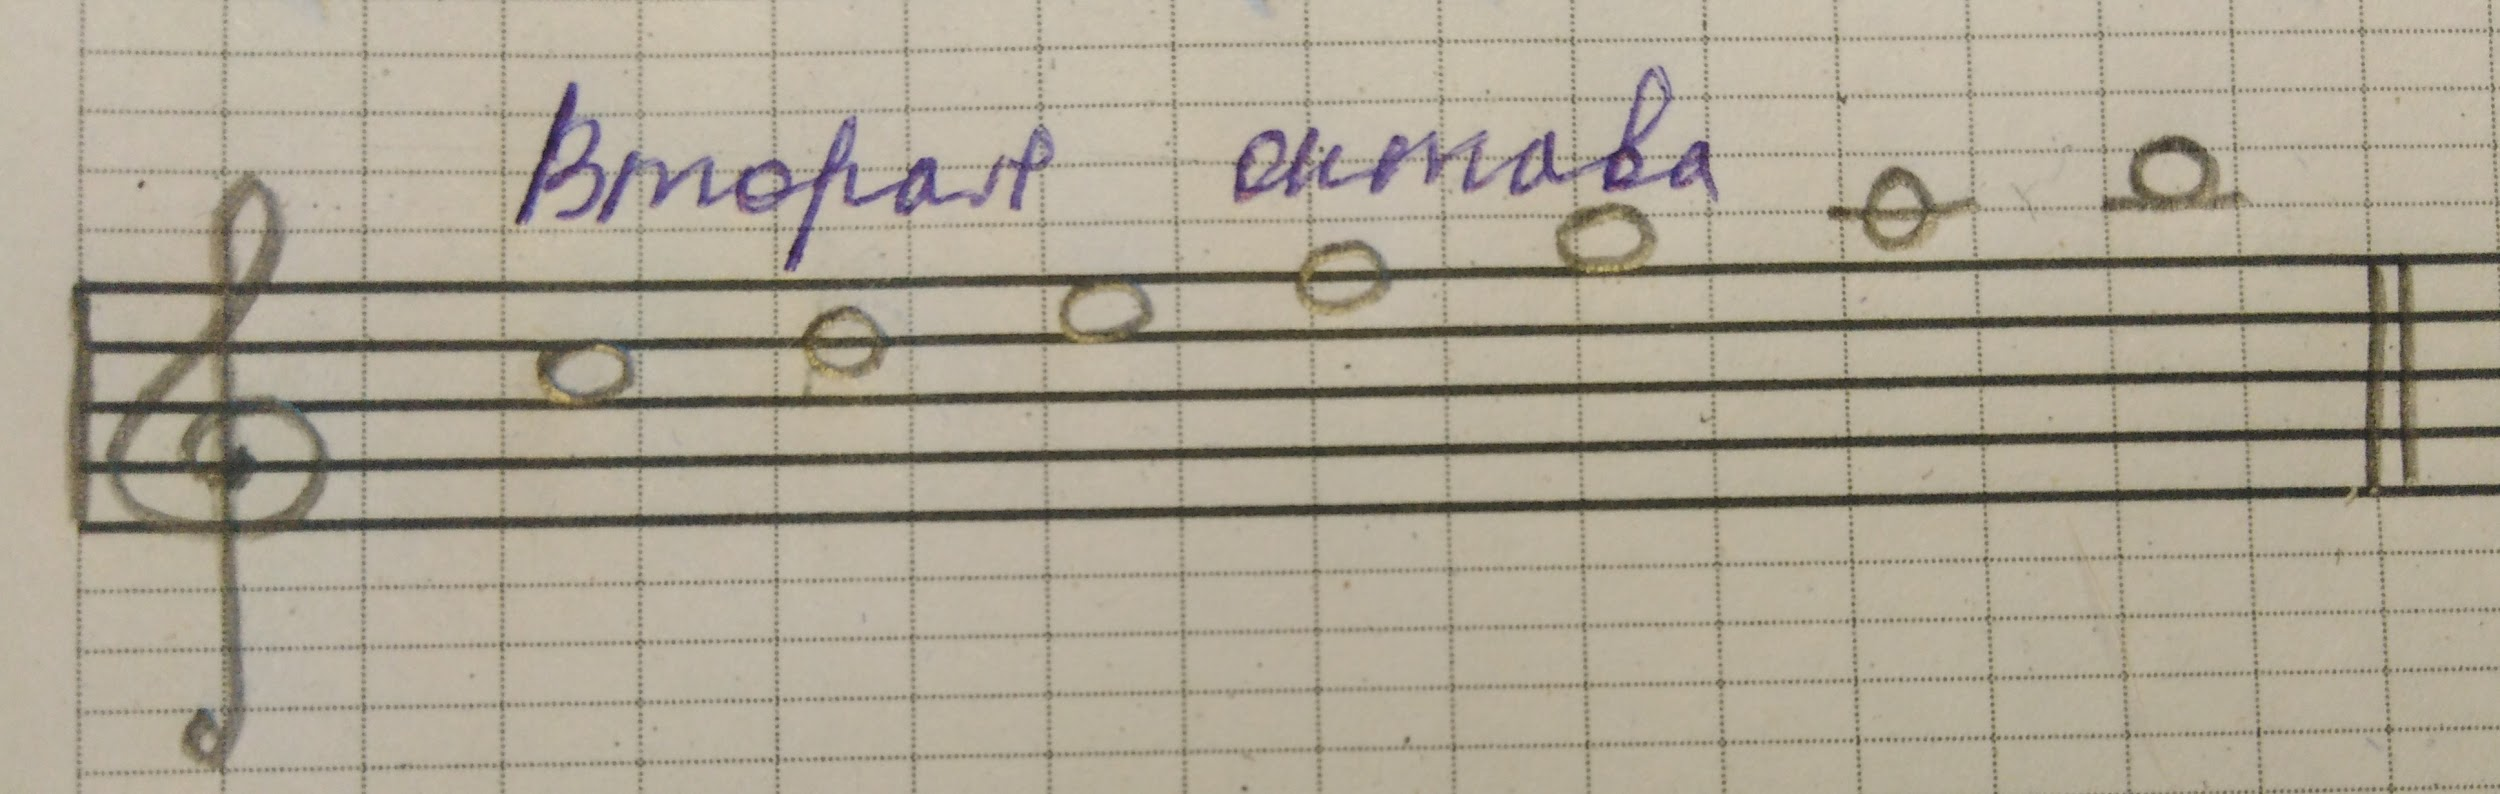 Вторая октава